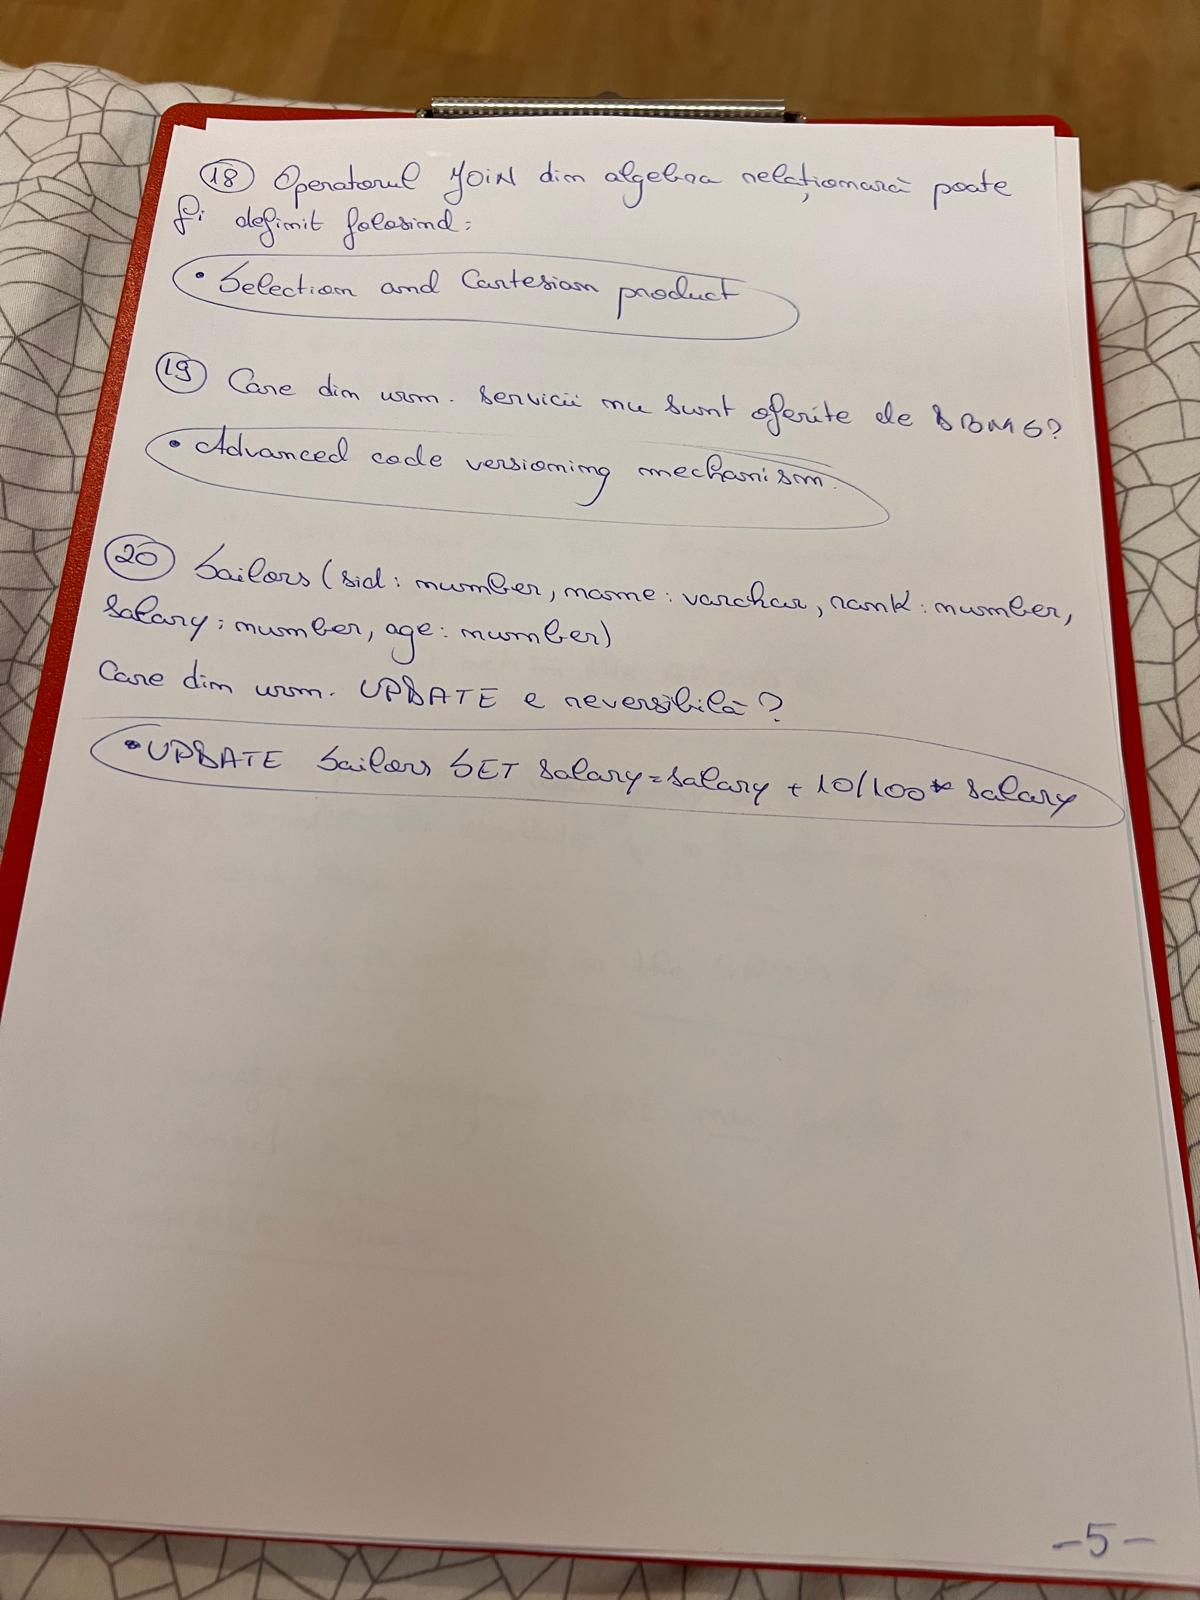 18 Operatorul JOIN din algebra relațională poate
fi definit folosind:
• Selection and Cartesian product
19 Care din urm. servicii nu sunt oferite de DBMS?
• Advanced code versioning mechanism.
20 Sailors (sid: number, name: varchar, rank: number,
salary: number, age: number)
Care din urm. UPDATE e reversibilă?
• UPDATE Sailors SET salary=salary + 10/100* salary
-5-